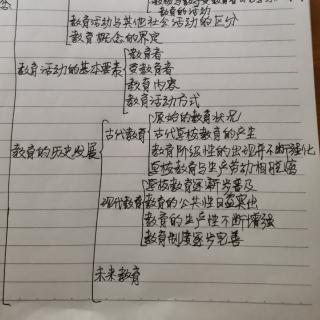 教育的活动
教育活动与其他社会活动的区分
教育概念的界定
教育活动的基本要素
教育者
受教育者
教育内容
教育活动方式
教育的历史发展
古代教育
原始的教育状况
古代学校教育的产生
教育阶级性的出现并不断强化
学校教育与生产劳动相脱离
现代教育
学校教育逐渐步普及
教育的公共性日益突出
教育的生产性不断增强
教育制度逐步完善
未来教育